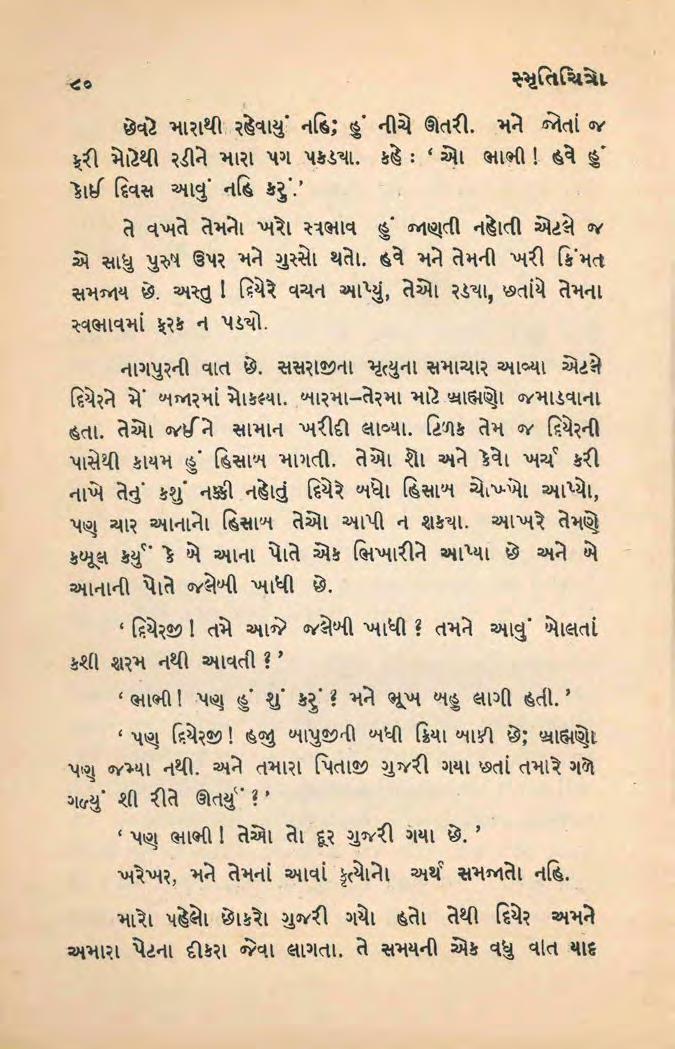 ૮૦ સ્મૃતિચિત્રો
છેવટે મારાથી રહેવાયું નહિ; હું નીચે ઊતરી. મને જોતાં જ
ફરી મોટેથી રડીને મારા પગ પકડયા. કહે : ‘ ઓ ભાભી ! હવે હું
કોઈ દિવસ આવું નહિ કરું.’
તે વખતે તેમનો ખરો સ્વભાવ હું જાણતી નહોતી એટલે જ
એ સાધુ પુરુષ ઉપર મને ગુસ્સો થતો. હવે મને તેમની ખરી કિંમત
સમજાય છે. અસ્તુ ! દિયેરે વચન આપ્યું, તેઓ રડયા, છતાંયે તેમના
સ્વભાવમાં ફરક ન પડયો.
નાગપુરની વાત છે. સસરાજીના મૃત્યુના સમાચાર આવ્યા એટલે
દિયેરને મેં બજારમાં મોકલ્યા. બારમા–તેરમા માટે બ્રાહ્મણો જમાડવાના
હતા. તેઓ જઈને સામાન ખરીદી લાવ્યા. ટિળક તેમ જ દિયેરની
પાસેથી કાયમ હું હિસાબ માગતી. તેઓ શો અને કેવો ખર્ચ કરી
નાખે તેનું કશું નક્કી નહોતું દિયેરે બધો હિસાબ ચોખ્ખો આપ્યો,
પણ ચાર આનાનો હિસાબ તેઓ આપી ન શકયા. આખરે તેમણે
કબૂલ કર્યું કે બે આના પોતે એક ભિખારીને આપ્યા છે અને બે
આનાની પોતે જલેબી ખાધી છે.
‘ દિયેરજી ! તમે આજે જલેબી ખાધી ? તમને આવું બોલતાં
કશી શરમ નથી આવતી ? ’
‘ ભાભી ! પણ હું શું કરું ? મને ભૂખ બહુ લાગી હતી. ’
‘ પણ દિયેરજી ! હજુ બાપુજીની બધી ક્રિયા બાકી છે; બ્રાહ્મણો
પણ જમ્યા નથી. અને તમારા પિતાજી ગુજરી ગયા છતાં તમારે ગળે
ગળ્યું શી રીતે ઊતર્યું ? ’
‘ પણ ભાભી ! તેઓ તો દૂર ગુજરી ગયા છે. ’
ખરેખર, મને તેમનાં આવાં કૃત્યોનો અર્થ સમજાતો નહિ.
મારો પહેલો છોકરો ગુજરી ગયો હતો તેથી દિયેર અમને
અમારા પેટના દીકરા જેવા લાગતા. તે સમયની એક વધુ વાત યાદ